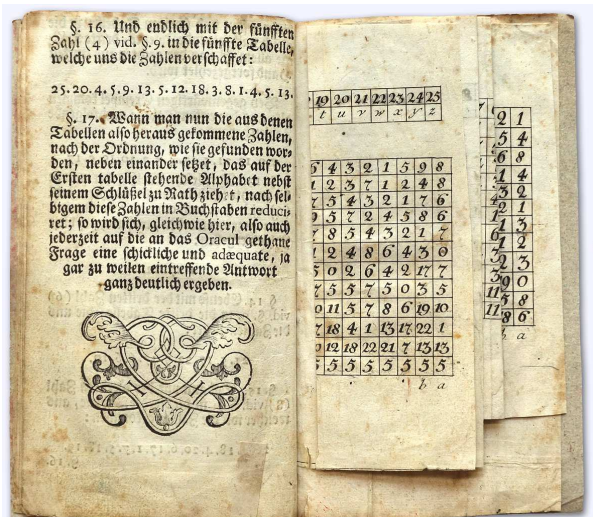 §. 16. Und endlich mit der fünfften
Zahl (4) vid. §. 9. in die fünffte Tabelle,
welche uns die Zahlen verschaffet:
25. 20. 4. 5. 9. 13. 5. 12. 18. 3. 8. 1. 4. 5. 13.
§. 17. Wann man nun die aus denen
Tabellen also heraus gekommene Zahlen,
nach der Ordnung, wie sie gefunden wor-
den, neben einander setzet, das auf der
Ersten tabelle stehende Alphabet nebst
seinem Schlüßel zu Rath ziehet, nach sel-
bigem diese Zahlen in Buchstaben reduci-
ret; so wird sich, gleich wie hier, also auch
jederzeit auf die an das Oracul gethane
Frage eine schickliche und adæquate, ja
gar zu weilen eintreffende Antwort
ganz deutlich ergeben.
19 20 21 22 23 24 25
t u v w x y z
4 3 2 1 5 9 8
2 3 7 1 2 4 8
5 4 3 2 1 7 6
5 7 2 4 5 8 6
8 5 4 3 2 1 7
2 4 8 6 4 3 0
0 2 6 4 2 17 7
5 5 7 5 0 3 5
11 5 7 8 6 19 10
18 4 1 13 17 22 1
12 18 22 21 7 13 13
5 5 5 5 5 5 5
b a
2 1
5 4
6 8
1 4
3 2
2 1
1 3
1 2
2 3
9 0
3 8
8 6
b a